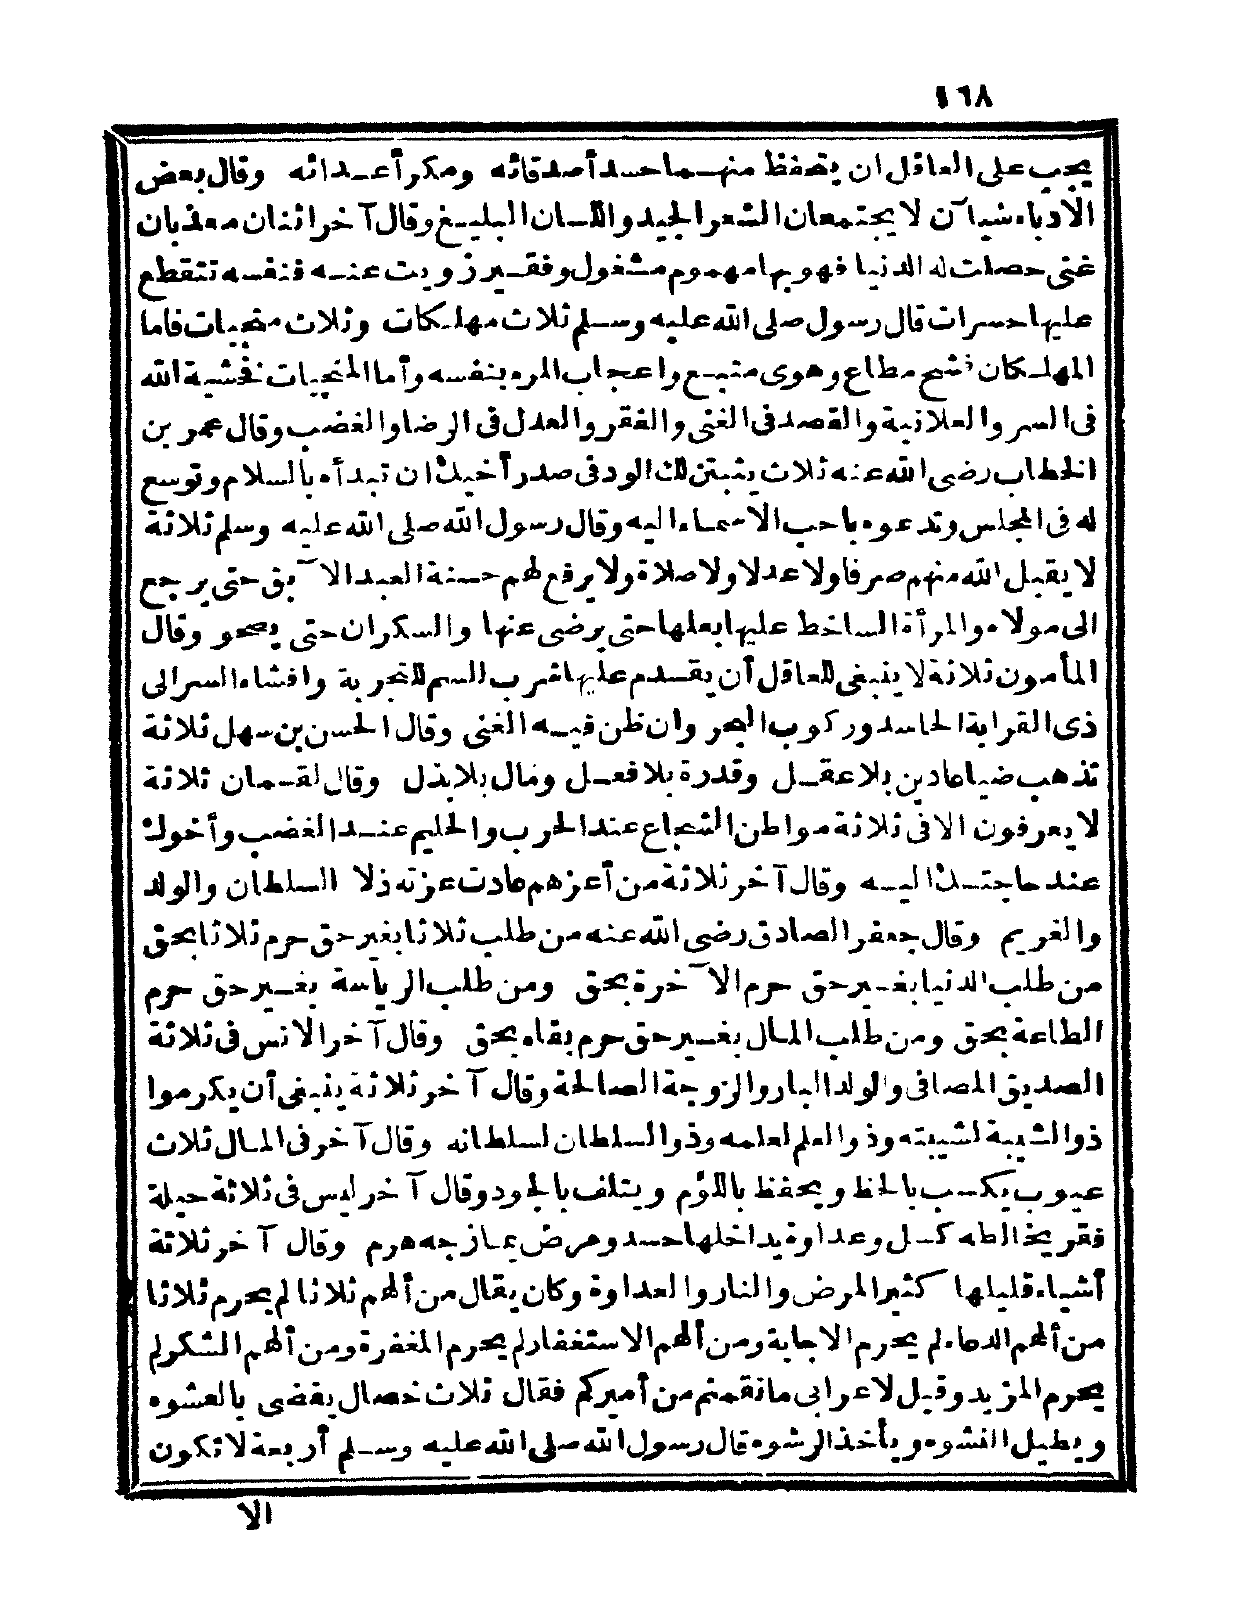 ١٦٨
يجب على العاقل ان يتحفظ منهما حسد أصدقائه ومكر أعدائه وقال بعض
الادباء شيآن لا يجتمعان الشعر الجيد واللسان البليغ وقال آخر اثنان معذبان
غنى حصلت له الدنيا فهو بها مهموم مشغول وفقير زويت عنه فنفسه تتقطع
عليها حسرات قال رسول صلى الله عليه وسلم ثلاث مهلكات وثلاث منجيات فاما
المهلكات فشح مطاع وهوى متبع واعجاب المرء بنفسه وأما المنجيات فخشية الله
فى السر والعلانية والقصد فى الغنى والفقر والعدل فى الرضا والغضب وقال عمر بن
الخطاب رضى الله عنه ثلاث يثبتن لك الود فى صدر أخيك ان تبدأه بالسلام وتوسع
له فى المجلس وتدعوه باحب الاسماء اليه وقال رسول الله صلى الله عليه وسلم ثلاثة
لا يقبل الله منهم صرفا ولا عدلا ولا صلاة ولا يرفع لهم حسنة العبد الآبق حتى يرجع
الى مولاه والمرأة الساخط عليها بعلها حتى يرضى عنها والسكران حتى يصحو وقال
المأمون ثلاثة لا ينبغى للعاقل أن يقدم عليها شرب السم للتجربة وافشاء السر الى
ذى القرابة الحاسد وركوب البحر وان ظن فيه الغنى وقال الحسن بن سهل ثلاثة
تذهب ضياعا دين بلا عقل وقدرة بلا فعل ومال بلا بذل وقال لقمان ثلاثة
لا يعرفون الا فى ثلاثة مواطن الشجاع عند الحرب والحليم عند الغضب وأخوك
عند حاجتك اليه وقال آخر ثلاثة من أعزهم عادت عزته ذلا السلطان والولد
والغريم وقال جعفر الصادق رضى الله عنه من طلب ثلاثا بغير حق حرم ثلاثا بحق
من طلب الدنيا بغير حق حرم الآخرة بحق ومن طلب الرياسة بغير حق حرم
الطاعة بحق ومن طلب المال بغير حق حرم بقاءه بحق وقال آخر الانس فى ثلاثة
الصديق المصافى والولد البار والزوجة الصالحة وقال آخر ثلاثة ينبغى أن يكرموا
ذو الشيبة لشيبته وذو العلم لعلمه وذو السلطان لسلطانه وقال آخر فى المال ثلاث
عيوب يكسب بالحظ ويحفظ باللؤم ويتلف بالجود وقال آخر ليس فى ثلاثة حيلة
فقر يخالطه كسل وعداوة يداخلها حسد ومرض يمازجه هرم وقال آخر ثلاثة
أشياء قليلها كثير المرض والنار والعداوة وكان يقال من ألهم ثلاثا لم يحرم ثلاثا
من ألهم الدعاء لم يحرم الاجابة ومن ألهم الاستغفار لم يحرم المغفرة ومن ألهم الشكر لم
يحرم المزيد وقيل لاعرابى ما نقمتم من أميركم فقال ثلاث خصال يقضى بالعشوه
ويطيل النشوه ويأخذ الرشوه قال رسول الله صلى الله عليه وسلم أربعة لا تكون
الا